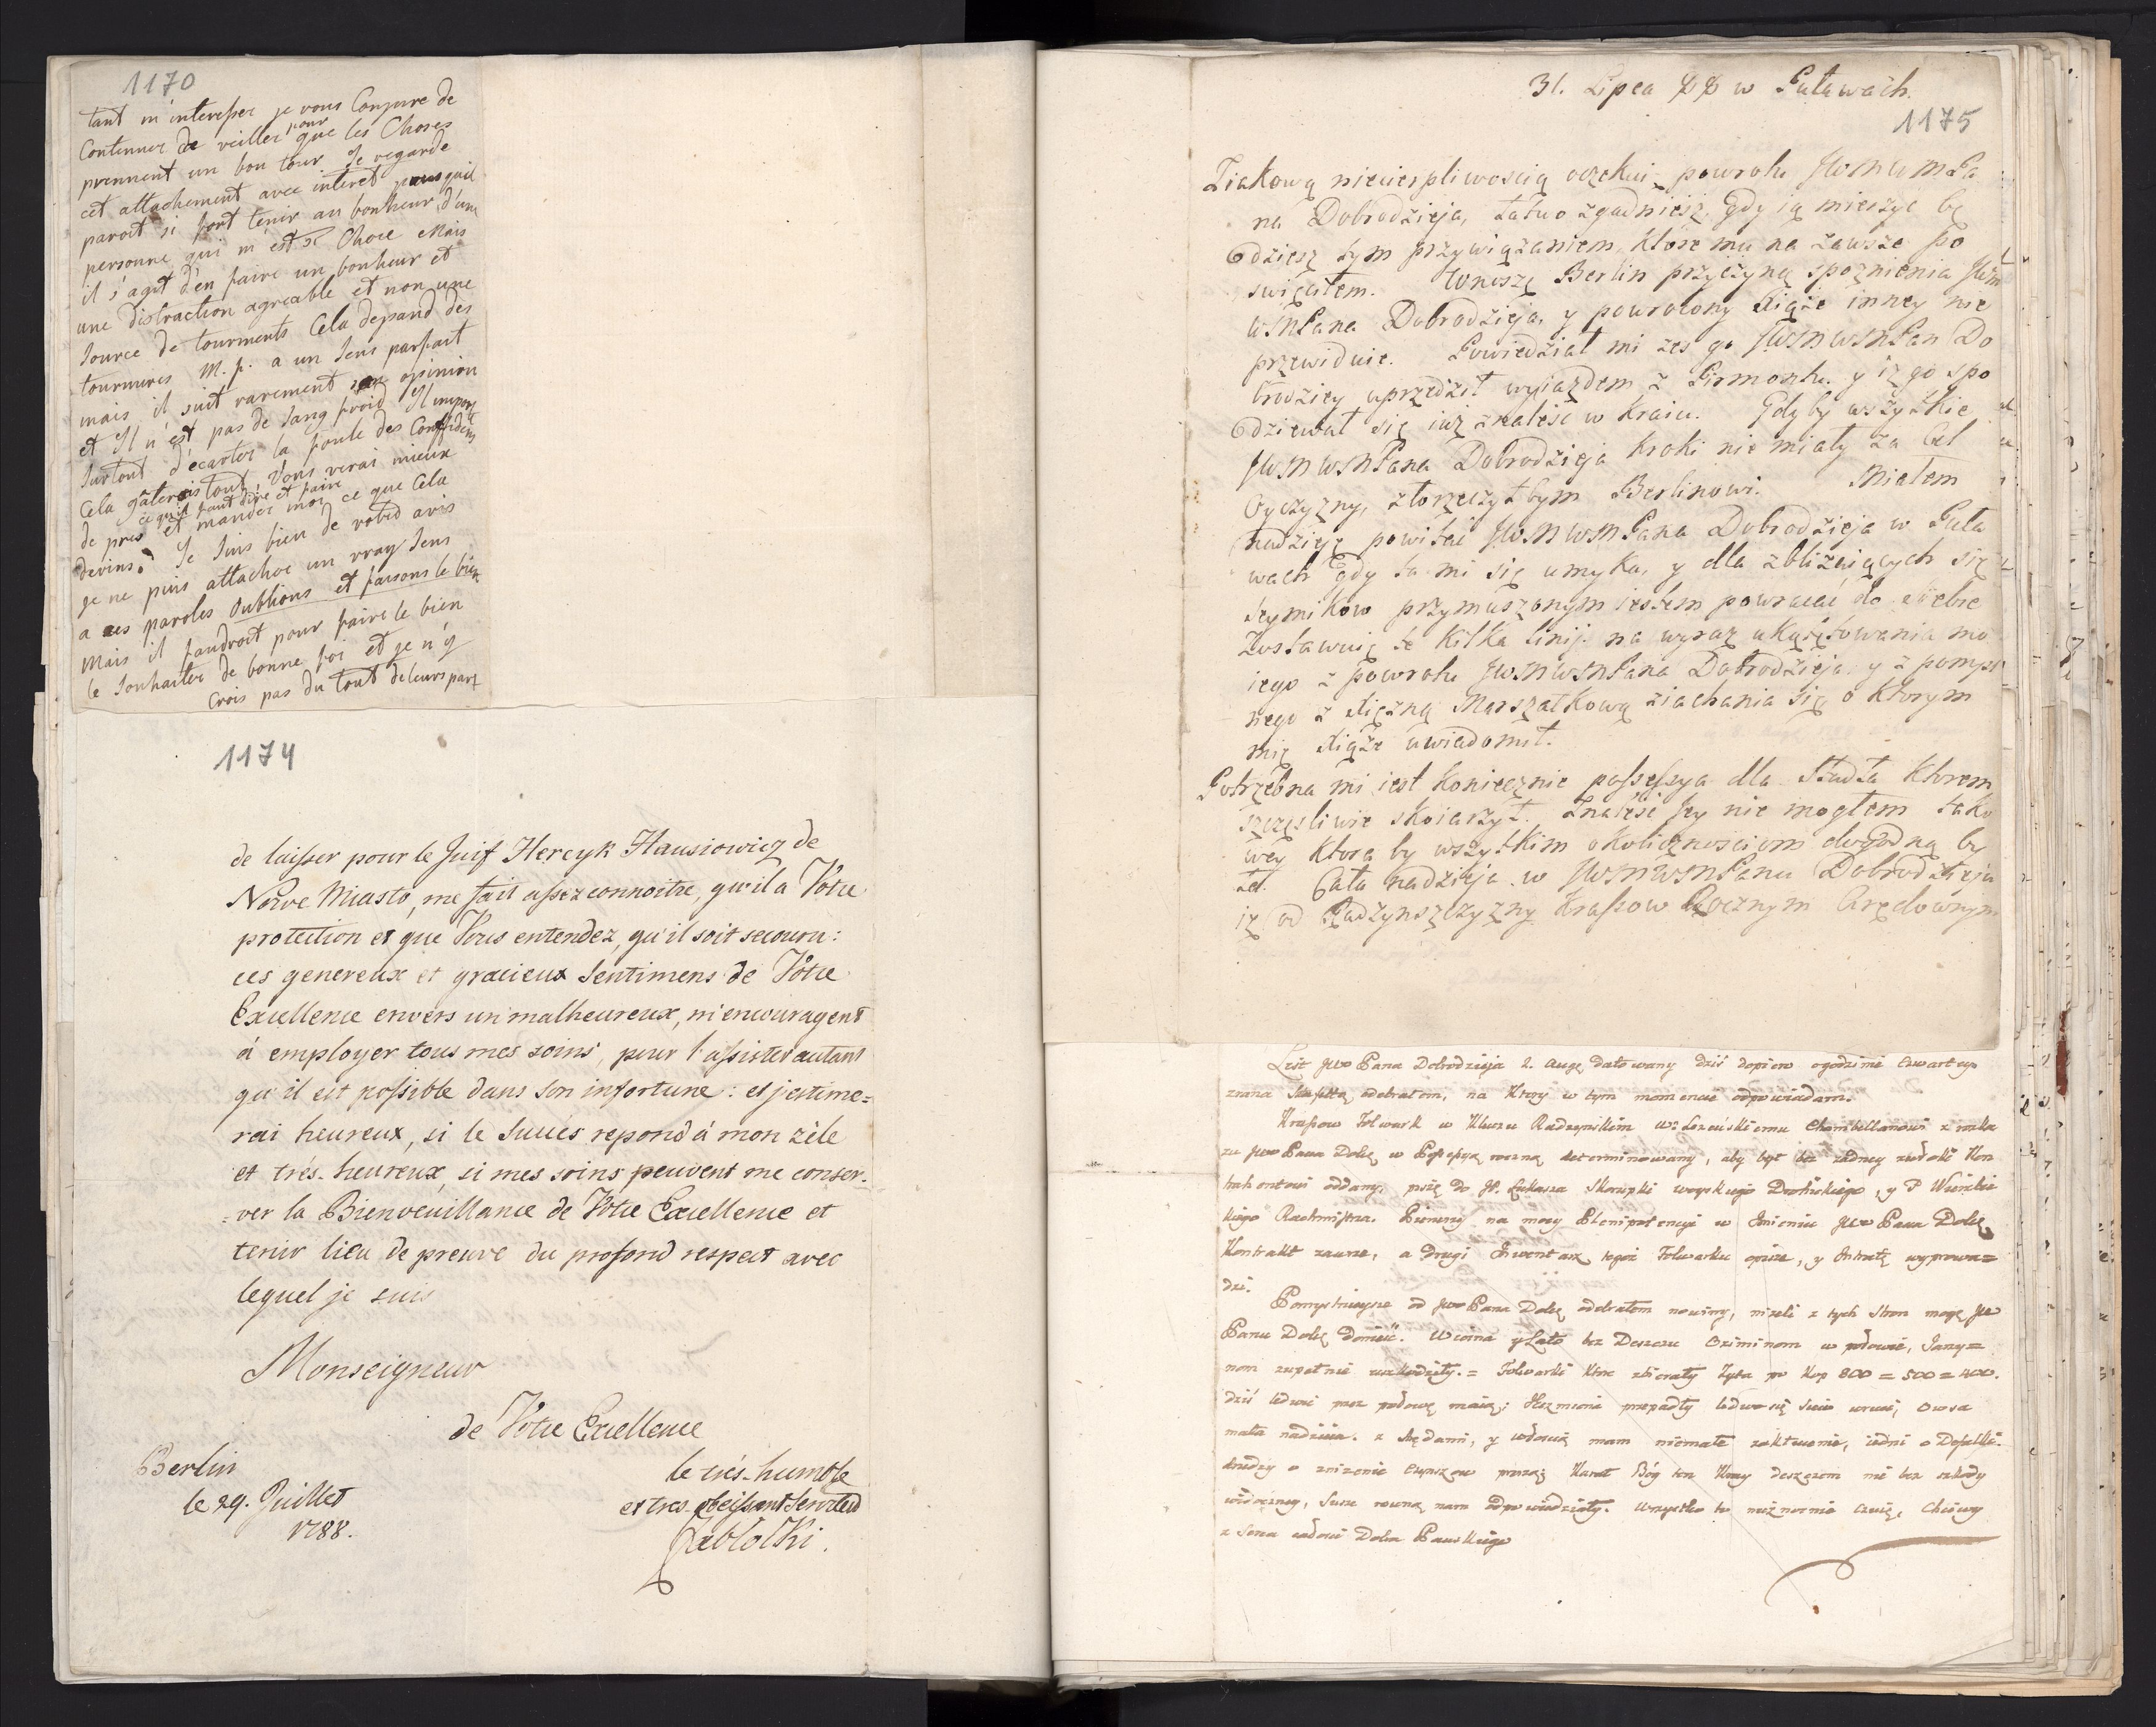 1170
tant m'interesser je vous Conjure de
Continuer de veiller pour que les Choses
prennent un bon tour Je regarde
cet attachement avec interet puisquil
paroit si fort tenir au bonheur d'une
personne qui m'est si Chere Mais
il s'agit d'en faire un bonheur et
une distraction agreable et non une
source de tourments Cela depand des
tournures M. p. a un sens parfait
mais il suit rarement son opinion
et Il n'est pas de sang froid Il importe
surtout d'ecarter la foule des Confidens
Cela gaterois tout, Vous verai mieux
de pres ce qu'il faut dire et faire et mandez moi ce que Cela
devins. Je suis bien de votre avis
je ne puis attacher un vray sens
a ces paroles Oublions et faisons le bien
Mais il faudroit pour faire le bien
le souhaiter de bonne foi et je n'y
Crois pas du tout de leurs part
1174
de laisser pour le Juif Hercyk Hausiowicz de
Nowe Miasto, me fait assez connoitre, qu'il a Vôtre
protection et que Vous entendez, qu'il soit secouru:
ces genereux et gracieux sentimens de Vôtre
Excellence envers un malheureux, m'encouragent
à employer tous mes soins, pour l'assister autant
qu'il est possible dans son infortune: et j'estime=
rai heureux, si le succés repond à mon zèle
et trés-heureux, si mes soins peuvent me conser-
=ver la Bienveuillance de Vôtre Excellence et
tenir lieu de preuve du profond respect avec
lequel je suis
Monseigneur
de Vôtre Excellence
Berlin
le 29. Juillet
1788.
le trés-humble
et tres-obeissant Serviteur
Jabłołki.
31. Lipca 88 w Puławach.
1175
Z iakową niecierpliwoscią oczekuię powrotu JWMWMPa
na Dobrodzieja, łatwo zgadniesz, gdy ią mierzyc bę
dziesz tym przywiązaniem, które mu na zawsze po
swięciłem. Wnoszę Berlin przyczyną spoznienia JW
WMPana Dobrodzieja, y powrolony Xiąże inney nie
przewiduie. Powiedział mi zes go JWMWMPan Do
brodziey uprzedził wyiazdem z Pirmontu. y iz go spo
dziewał się iuż znaleśc w Kraiu. Gdyby wszystkie
JWMWMPana Dobrodzieja kroki nie miały za Cel
Oyczyzny, złorzeczyłbym Berlinowi. Miałem
nadzieję powitać JWMWMPana Dobrodzieja w Puła
wach gdy ta mi się umyka, y dla zbliżaiących się
seymikow przymuszonym jestem powracać do siebie
Zostawuię te kilka linij na wyraz ukątętowania mo
iego z powrotu JWMWMPana Dobrodzieja y z pomysl
nego z Xiężną Marszałkową ziachania się o ktorym
mię Xiąże uwiadomił.
Potrzebna mi iest koniecznie possessya dla Stadła ktorem
szczęsliwie skoiarzył. Znaleśc jey nie mogłem tako
wey ktora by wszystkim okolicznosciom dogodną by
ła. Cała nadzieja w JWMWMPanu Dobrodzieju
iż od Radzynszczyzny Krassow Rocznym Arędownym
List JWo Pana Dobrodzieja 2. Aug: datowany dziś dopiero o godzinie czwartey
zrana Sztafetą odebrałem, na ktory w tym momencie odpowiadam.
Krassow Folwark w Kluczu Radzynskim W: Lozeńskiemu Chambellanowi z rozka
zu JWo Pana Dobr w Possessyą roczną determinowany, aby był bez żadney zwłoki Kon
trahentowi oddany, piszę do JP. Łukasza Skarupki woyskiego Drohickiego, y P Wierzbic
kiego Rachmistrza. Pierwszy na mocy Plenipotencyi w Imieniu JWo Pana Dobr
Kontrakt zawrze, a drugi Inwentarz tegoż Folwarku opisze, y Intratę wyprowa=
dzi.
Pomyslnieysze od JWo Pana Dobr odebrałem nowiny, niżeli z tych stron mogę JW
Panu Dobr donieść. Wiosna y Lato bez Deszczu Oziminom w połowie, Jarzy=
nom zupełnie zaszkodziły. = Folwarki które zbierały Żyta po Kop 800 = 500 = 400.
dziś ledwie przez połowę maią; Jęczmiona przepadły ledwo się siewu wroci, Owsa
mała nadzieja. z Arędami, y włoscią mam niemałe zatrudnienie, iedni o Defalki.
drudzy o zniżenie Czynszow proszą; Karał Bóg ten Kray deszczem nie bez szkody
widoczney, Susze rowną nam odpowiedziały. Wszystko to nieznosnie czuię, chciwy
z serca całości Dobra Pańskiego